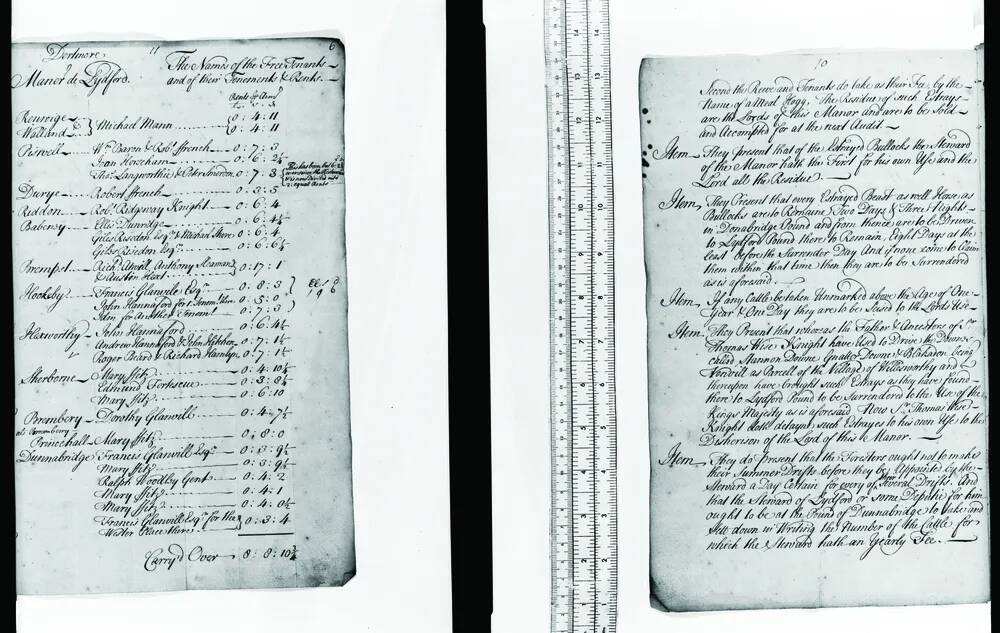 Dertmore 11 6
The Names of the Free Tenants
Manor de Lydford. and of their Tenements & Rents.
Rents
Renrige
Walland Michael Mann 0 : 4 : 11
0 : 4 : 11
Piswell Wm Baron & Robt ffrench 0 : 7 : 3
Joan Horeham 0 : 6 : 2½
Thos Langworthie & Peter Smerdon 0 : 7 : 3
Durye Robert ffrench 0 : 3 : 5
Riddon Robt Ridgeway Knight 0 : 6 : 4
Babeny Ellis Dunridge 0 : 6 : 4½
Giles Risedon Esqr & Michael Hare 0 : 6 : 4
Giles Risedon Esqr 0 : 6 : 6½
Brempst Richd Atwill Anthony Seaman
& Austin Hext 0 : 17 : 1
Hooksby Francis Glanvile Esqr 0 : 8 : 3
John Hannaford for 1 Tenemt 0 : 5 : 0
Idm for Another Tenemt 0 : 7 : 3
Hexworthy John Hannaford 0 : 6 : 4½
Andrew Hannaford & John Hitchen 0 : 7 : 1½
Roger Beard & Richard Hamlyn 0 : 7 : 1½
Sherborne Mary ffitz 0 : 4 : 10½
Edmund Fortescue 0 : 3 : 8½
Mary ffitz 0 : 6 : 10
Brembery Dorothy Glanvill 0 : 4 : 7½
Princehall Mary ffitz 0 : 8 : 0
Dunnabridge Francis Glanvill Esqr 0 : 3 : 9½
Mary ffitz 0 : 3 : 9½
Ralph Woodley Gent 0 : 4 : 2
Mary ffitz 0 : 4 : 1
Mary ffitz 0 : 4 : 0½
Francis Glanvill Esqr for the
Wester Place there 0 : 3 : 4
Carry'd Over 8 : 8 : 10½
10
Second the Reeve and Tenants do take as their Fee by the
Name of a Meal Hogg. The Residue of such Estrays
are the Lords of this Manor and are to be Sold
and Accompted for at the next Audit
Item They present that of the Estrayed Bullocks the Steward
of the Manor hath the First for his own Use and the
Lord all the Residue.
Item They Present that every Estrayed Beast as well Horse as
Bullocks are to Remaine Two Days & Three Nights
in Donabridge Pound and from thence are to be Driven
to Lydford Pound there to Remain Eight Days at the
least before the Surrender Day And if none come to Claim
them within that time then they are to be Surrendered
as is aforesaid.
Item If any Cattle be taken Unmarked above the Age of One
Year & One Day they are to be Seised to the Lords Use
Item They Present that whereas the Father & Ancestors of Sr
Thomas Wise Knight have Used to Drive the Downs
called Stannon Downe Gnattor Downe & Blakavon being
Venvill as Parcell of the Village of Willesworthy and
thereupon have brought such Estrays as they have found
there to Lydford Pound to be Surrendered to the Use of the
Kings Majesty as is aforesaid Now Sr Thomas Wise
Knight doth delayne such Estrayes to his own Use to the
Disherison of the Lord of this Manor.
Item They do Present that the Foresters ought not to make
their Summer Drifts before they be Appointed by the
Steward a Day Certain for every of their Several Drifts And
that the Steward of Lydford or some Deputie for him
ought to be at the Pound of Dunnabridge to take and
Sett down in Writing the Number of the Cattle for
which the Steward hath an Yearly Fee.